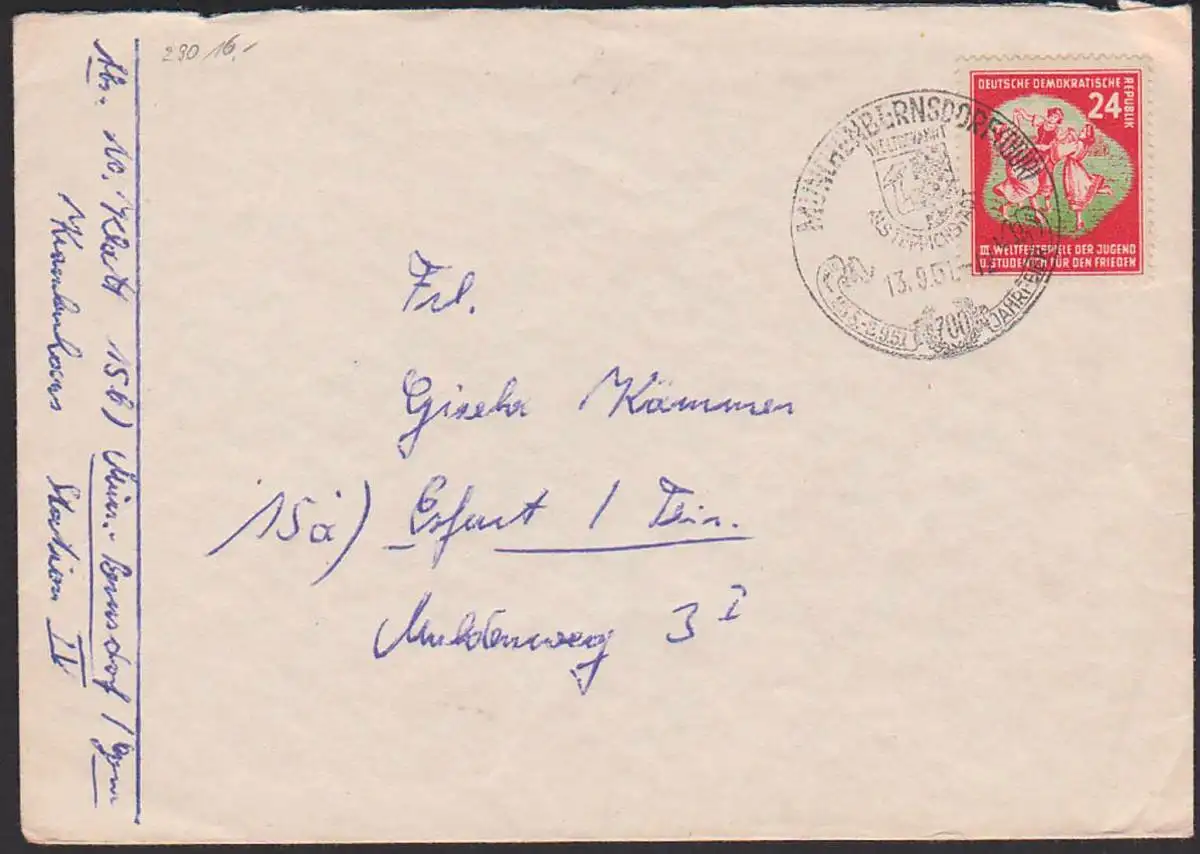 290 16,-
DEUTSCHE DEMOKRATISCHE
REPUBLIK
24
III. WELTFESTSPIELE DER JUGEND
U. STUDENTEN FÜR DEN FRIEDEN
MÜNCHENBERNSDORF (THÜR)
WELTBEKANNT
ALS TEPPICHSTADT
13.9.51
700
JAHRFEIER
Frl.
Gisela Kämmer
15a) Erfurt / Thür.
Muldenweg 3 I
Abs. W. Klatt 15b) Mün.-Bernsdorf / Gera
Krankenhaus Station II